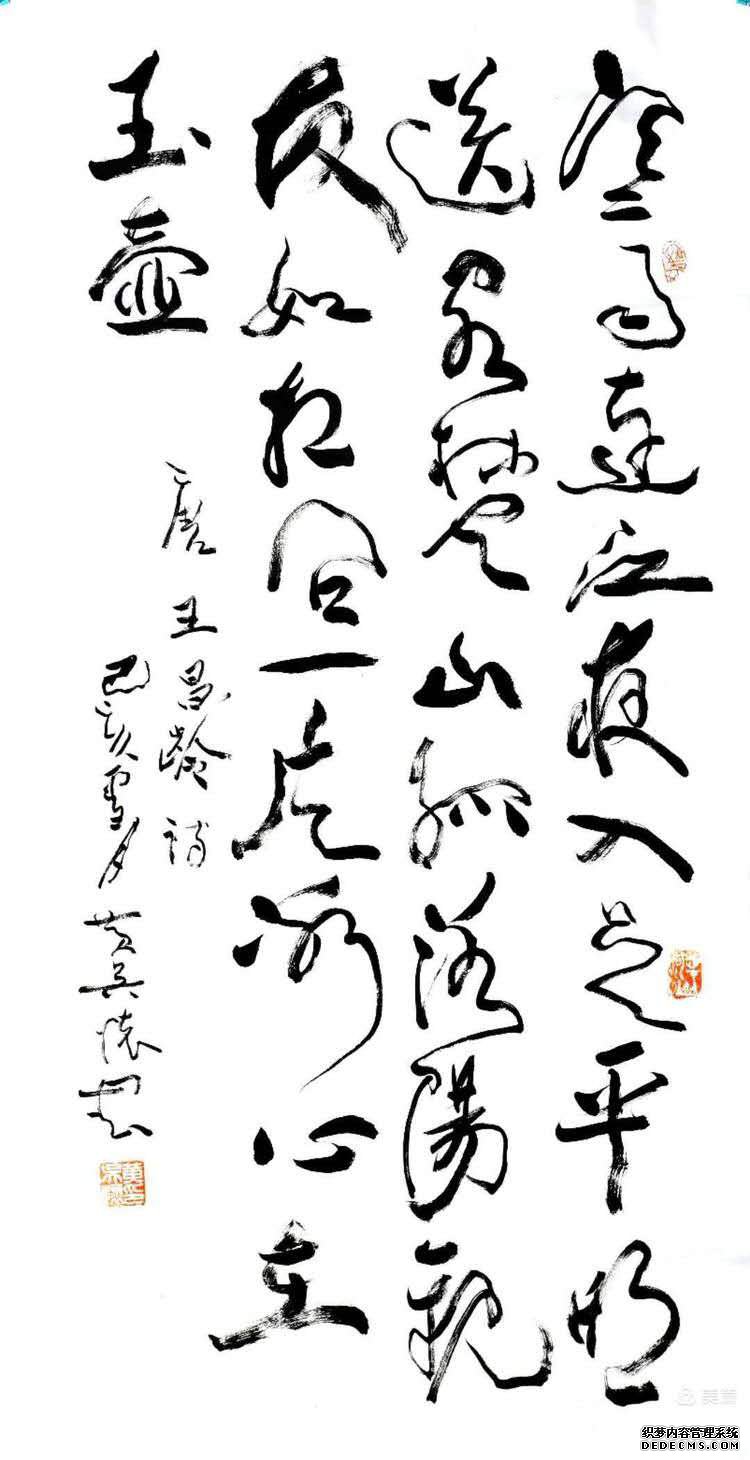 寒雨連江夜入吴平明
送客楚山孤洛陽親
友如相问一片冰心在
玉壺
唐 王昌齡 诗
己亥雪月
美篇
织梦内容管理系统
DEDECMS.COM